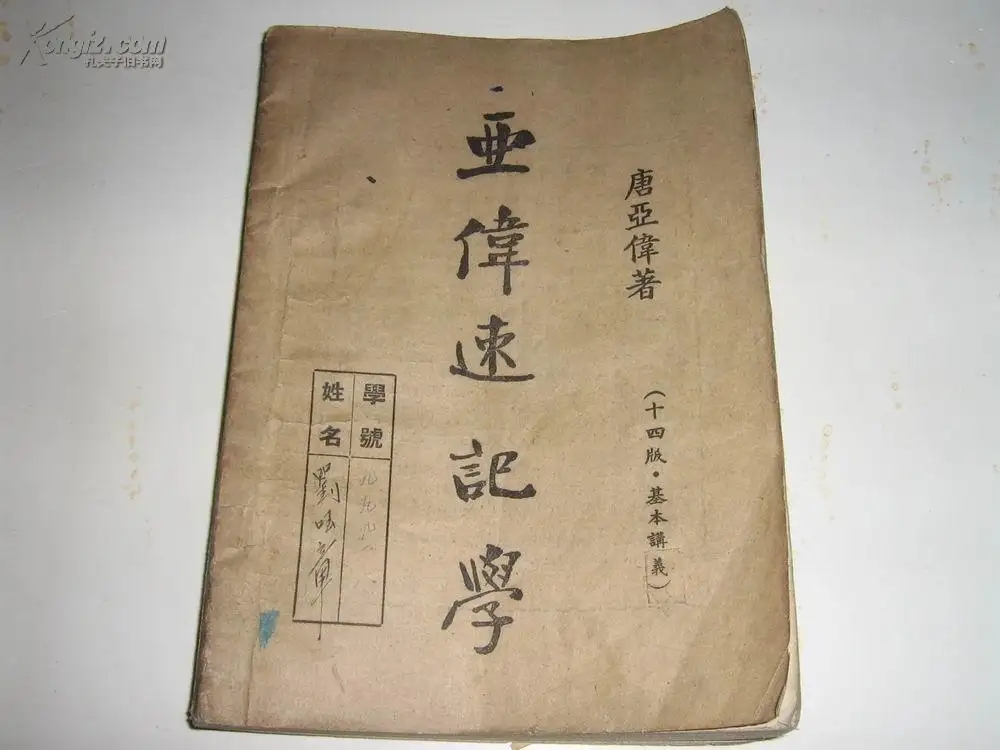 Kongfz.com
孔夫子旧书网
唐亞偉著
(十四版·基本講義)
亞偉速記學
學號
姓名 劉
章